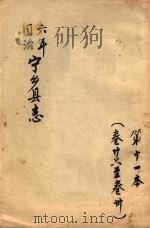 同治
六年
宁乡县志
第十一本
（卷廿六至卷卅）
PDG